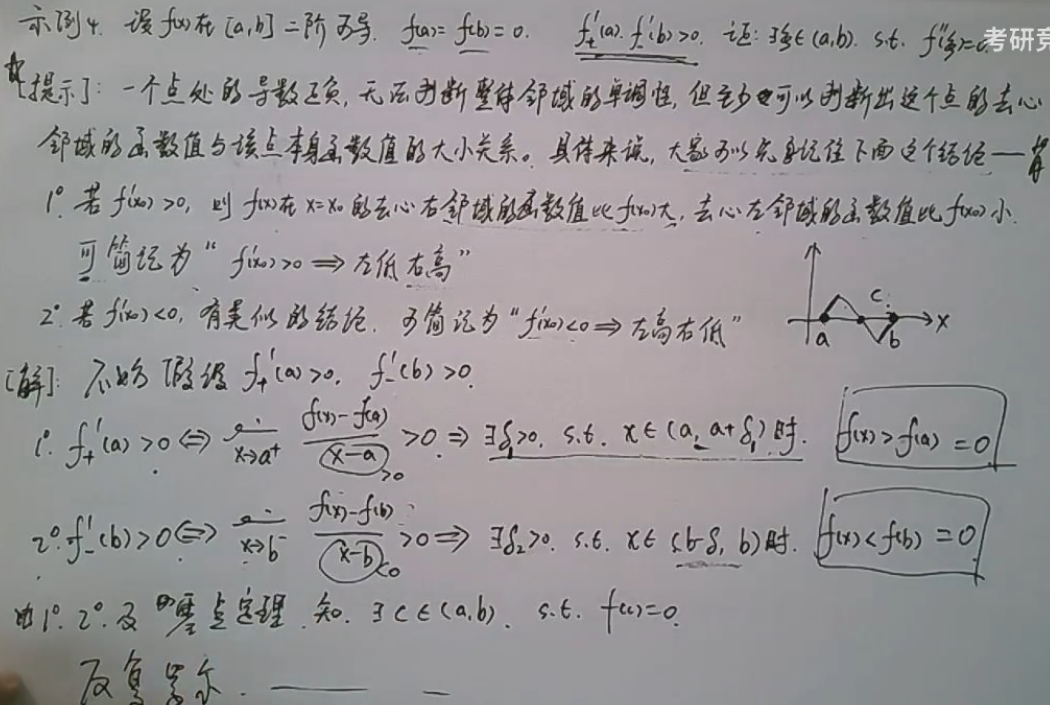 示例4. 设f(x)在[a,b]二阶可导. f(a)=f(b)=0. f₊'(a)·f₋'(b)>0. 证: ∃ξ∈(a,b). s.t. f''(ξ)=0
考研竞
[提示]: 一个点处的导数正负, 无法判断整体邻域的单调性, 但至少可以判断出这个点的去心
邻域的函数值与该点本身函数值的大小关系。具体来说, 大家可以先记住下面这个结论——
1°. 若f'(x₀)>0, 则f(x)在x=x₀的去心右邻域的函数值比f(x₀)大, 去心左邻域的函数值比f(x₀)小.
可简记为“f'(x₀)>0⇒左低右高”
2°. 若f'(x₀)<0, 有类似的结论. 可简记为“f'(x₀)<0⇒左高右低”
a c b x
[解]: 不妨假设f₊'(a)>0, f₋'(b)>0.
1°. f₊'(a)>0⇔lim x→a⁺ (f(x)-f(a))/(x-a) >0 >0.⇒∃δ₁>0. s.t. x∈(a, a+δ₁)时. f(x)>f(a)=0
2°. f₋'(b)>0⇔lim x→b⁻ (f(x)-f(b))/(x-b) <0 >0⇒∃δ₂>0. s.t. x∈(b-δ, b)时. f(x)<f(b)=0
由1°. 2°. 及零点定理. 知. ∃c∈(a,b). s.t. f(c)=0.
反复罗尔. —— —